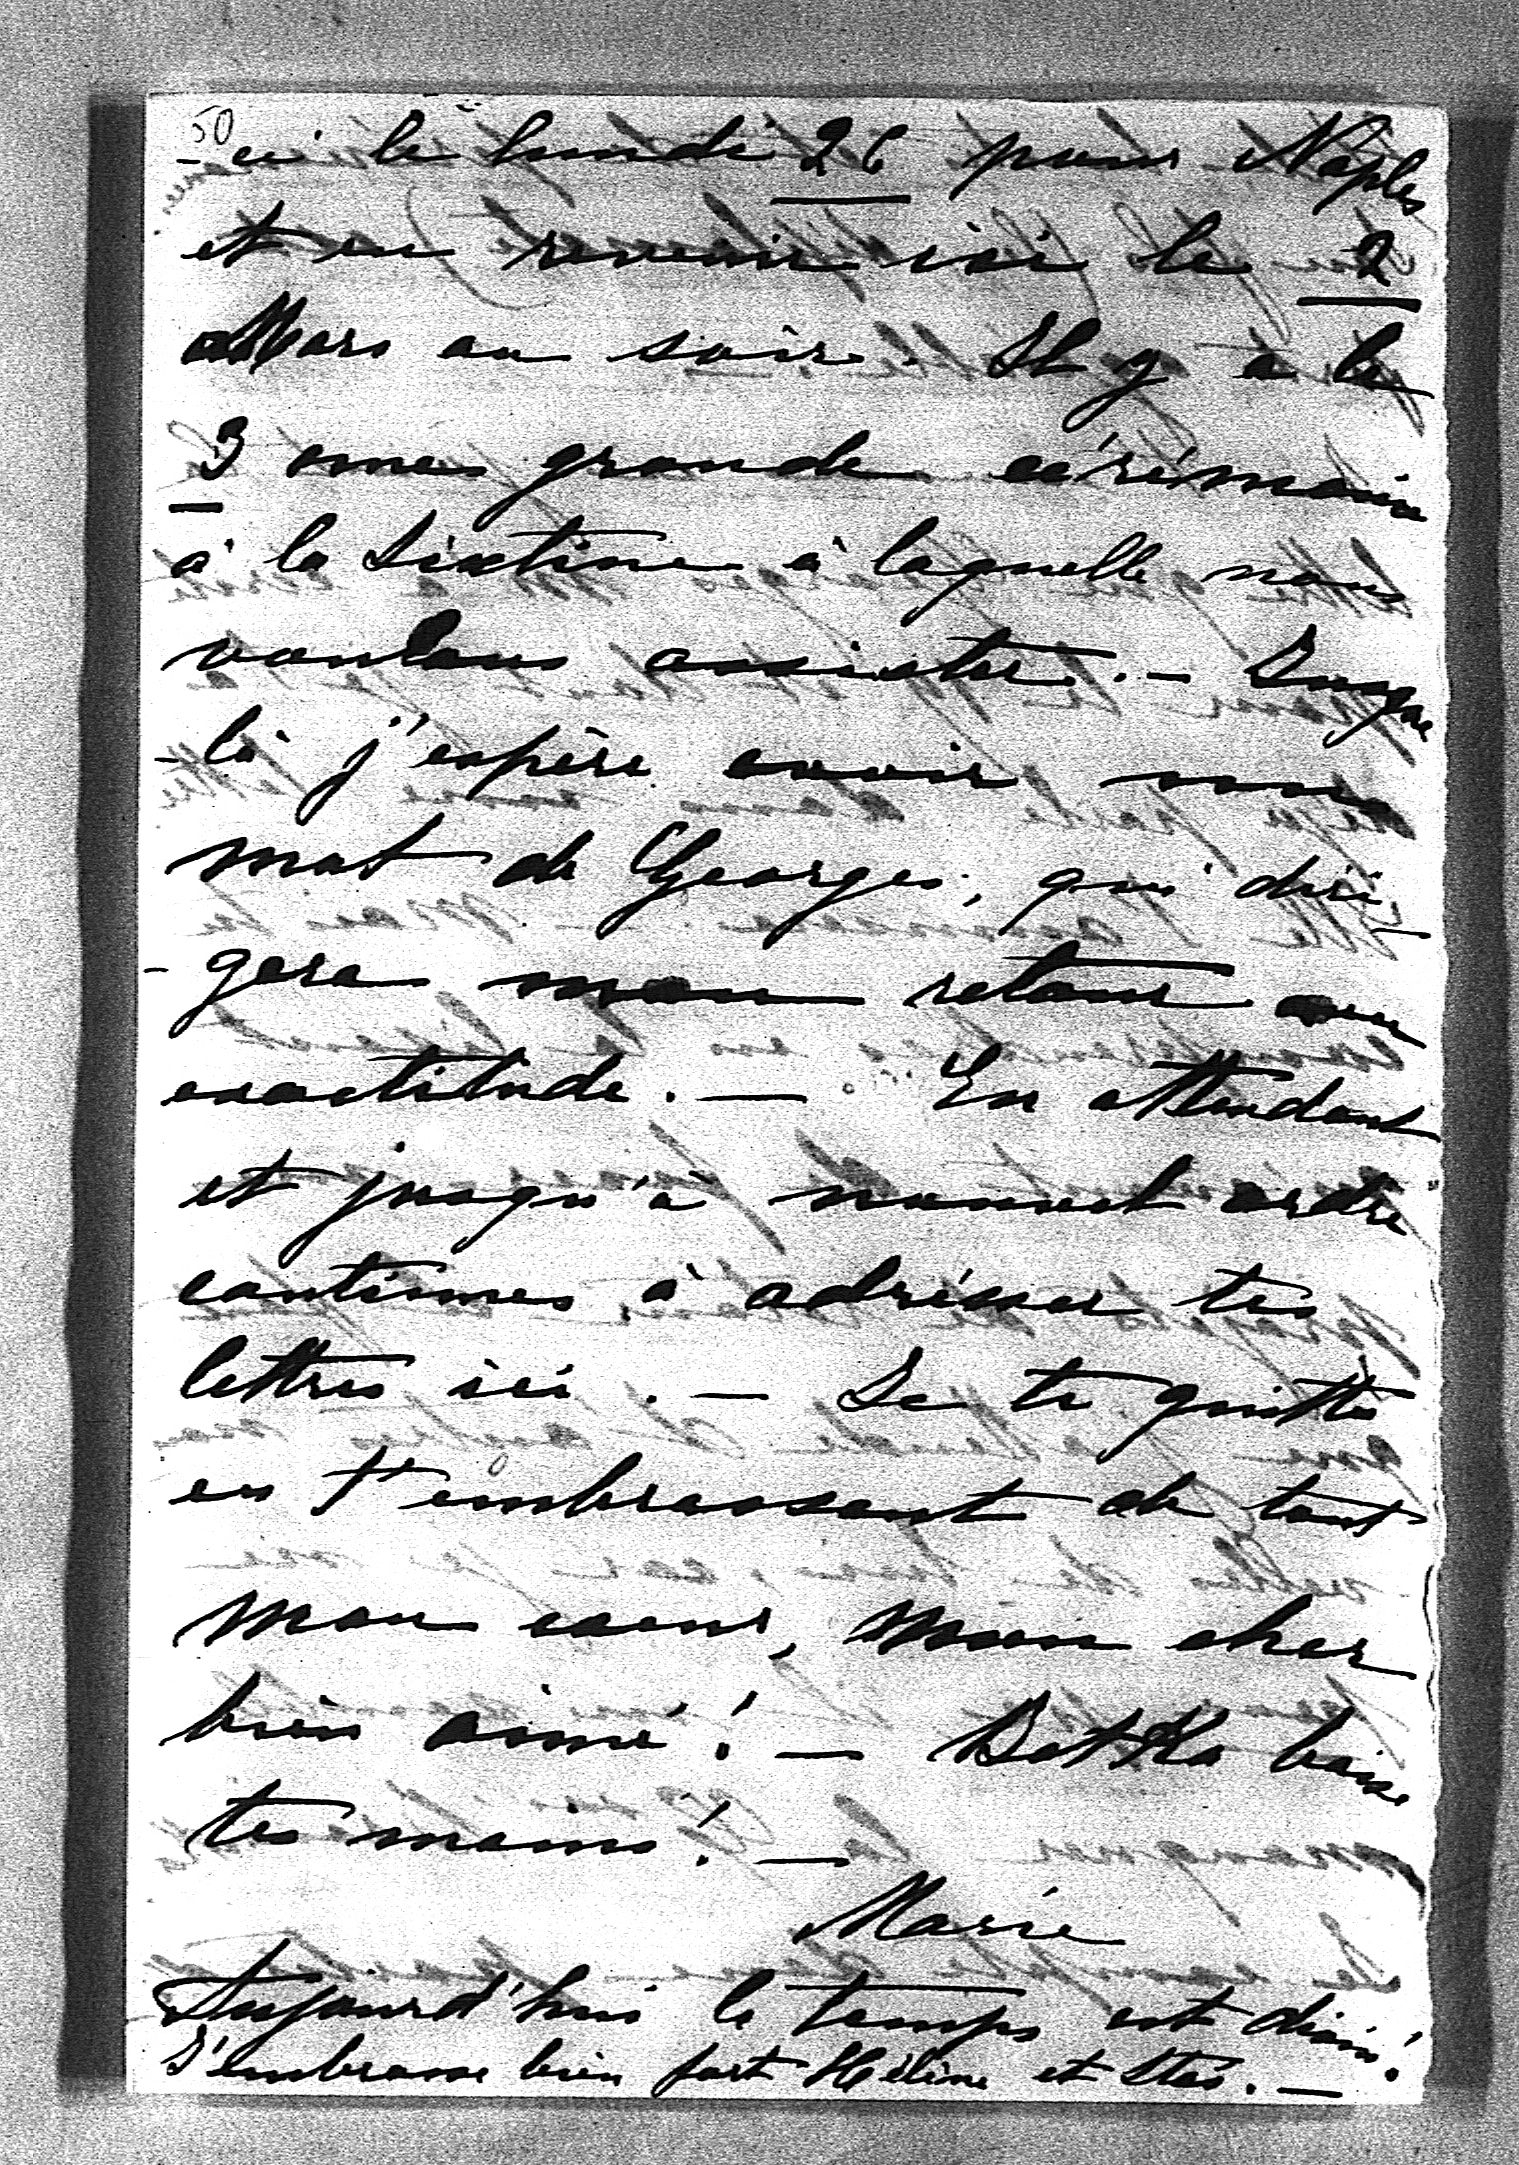 50
- ci le lundi 26 pour Naples
et en revenir ici le 2
Mars au soir. Il y a le
3 une grande cérémonie
à la Sixtine à laquelle nous
voulons assister. – Jusque
-là j'espère avoir un
mot de Georges, qui diri-
- gera mon retour avec
exactitude. — En attendant
et jusqu'à nouvel ordre
continues à adresser tes
lettres ici. — Je te quitte
en t'embrassant de tout
mon coeur, mon cher
bien aimé! — Betka baise
tes mains! —
Marie
Aujourd'hui le temps est divin!
J'embrasse bien fort Hélène et Stes. —